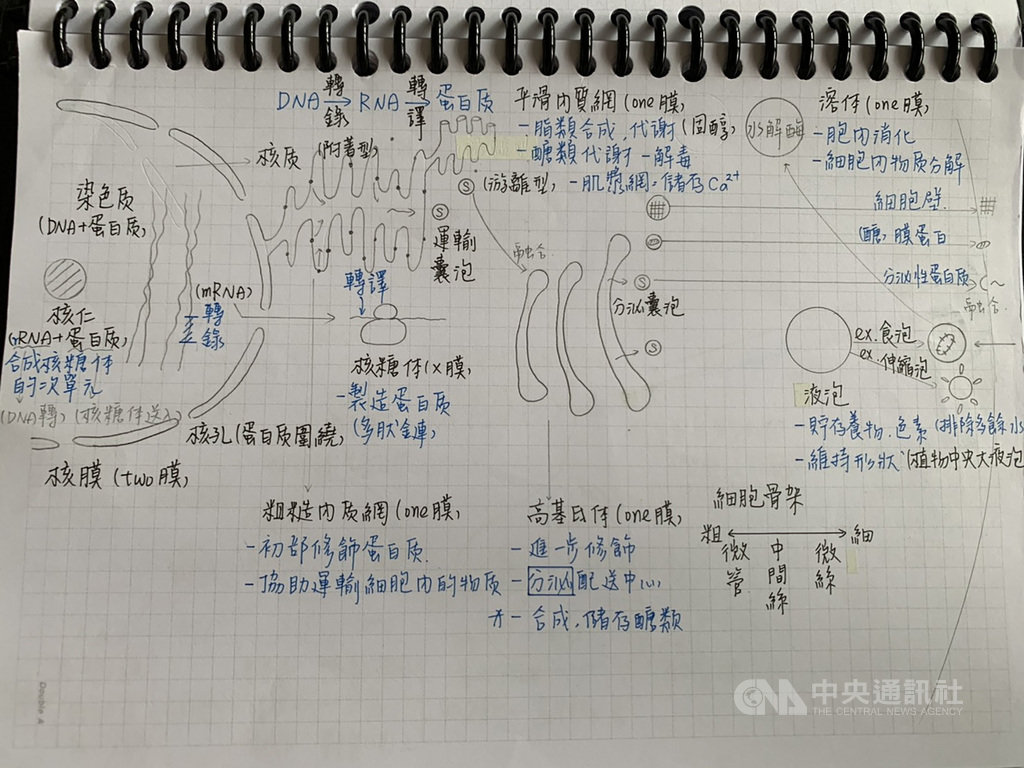 DNA 轉錄→ RNA 轉譯→ 蛋白质
核质
(附著型)
染色质
(DNA+蛋白质)
核仁
(rRNA+蛋白质)
合成核糖体
的次單元
(DNA轉) (核糖体送入)
(mRNA)
轉錄
核孔(蛋白质圍繞)
核膜(two膜)
轉譯
核糖体(x膜)
-製造蛋白质
(多肽金連)
S
(游離型)
S
運輸
囊泡
平滑內質網(one膜)
-脂類合成.代謝(固醇)
-醣類代謝-解毒
-肌漿網.儲存Ca2+
融合
S
分泌囊泡
S
水解酶
溶体(one膜)
-胞內消化
-細胞內物质分解
細胞壁
(醣)膜蛋白
分泌性蛋白质
融合
ex.食泡
ex.伸縮泡
液泡
-貯存養物.色素(排除多餘水
-維持形狀(植物中央大液泡
粗糙內质網(one膜)
-初部修飾蛋白质
-協助運輸細胞內的物质
高基氏体(one膜)
-進一步修飾
-分泌配送中心
*-合成.儲存醣類
細胞骨架
粗 ↔ 細
微管
中間絲
微絲
Double A
CNA 中央通訊社
THE CENTRAL NEWS AGENCY